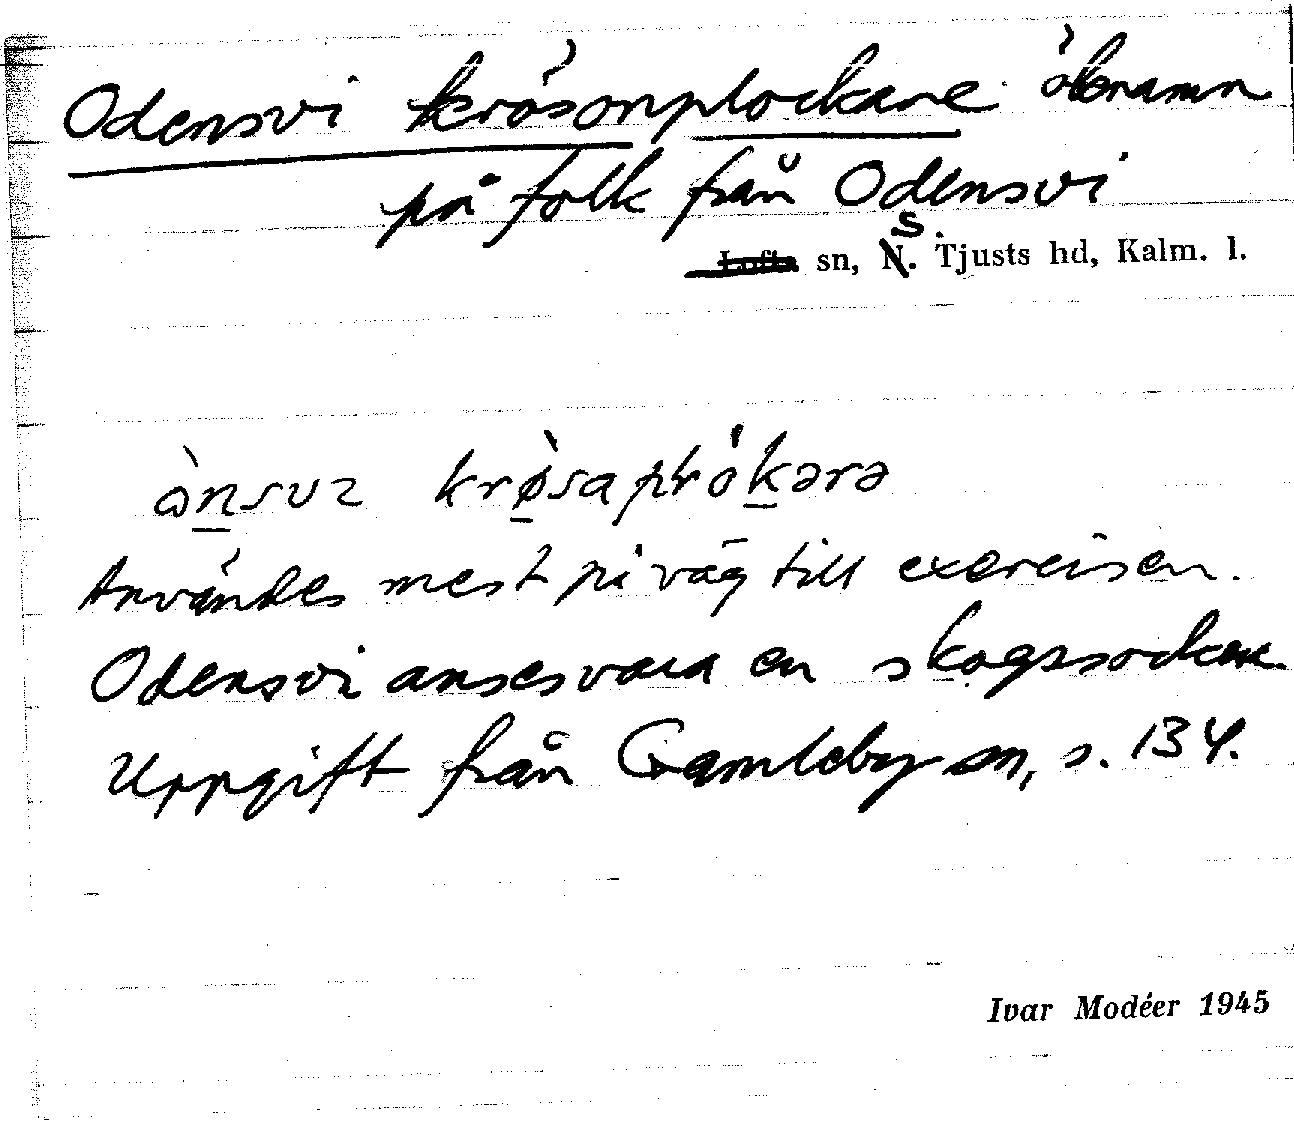 Odensvi krösonplockare öknamn
på folk från Odensvi
Lofta sn, S. Tjusts hd, Kalm. l.
Användes mest på väg till exercisen.
Odensvi anses vara en skogssocken.
Uppgift från Gamleby sn, s. 134.
Ivar Modéer 1945